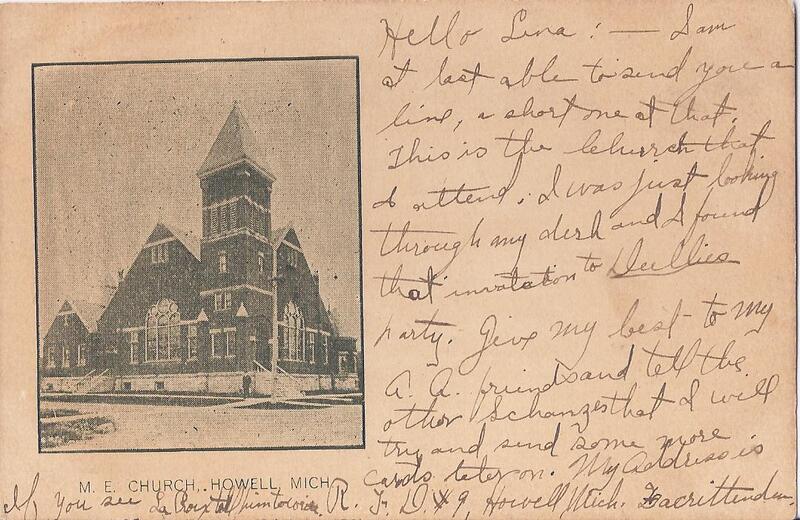 Hello Lena : — I am
at last able to send you a
line, a short one at that.
This is the Church that
I attend. I was just looking
through my desk and I found
that invatation to
party. Give my best to my
A. A. friends and tell the
other exchanges that I will
try and send some more
cards later on. My Address is
R. F. D. #9, Howell Mich.
M. E. CHURCH, HOWELL, MICH.
If you see La Croix tell him to